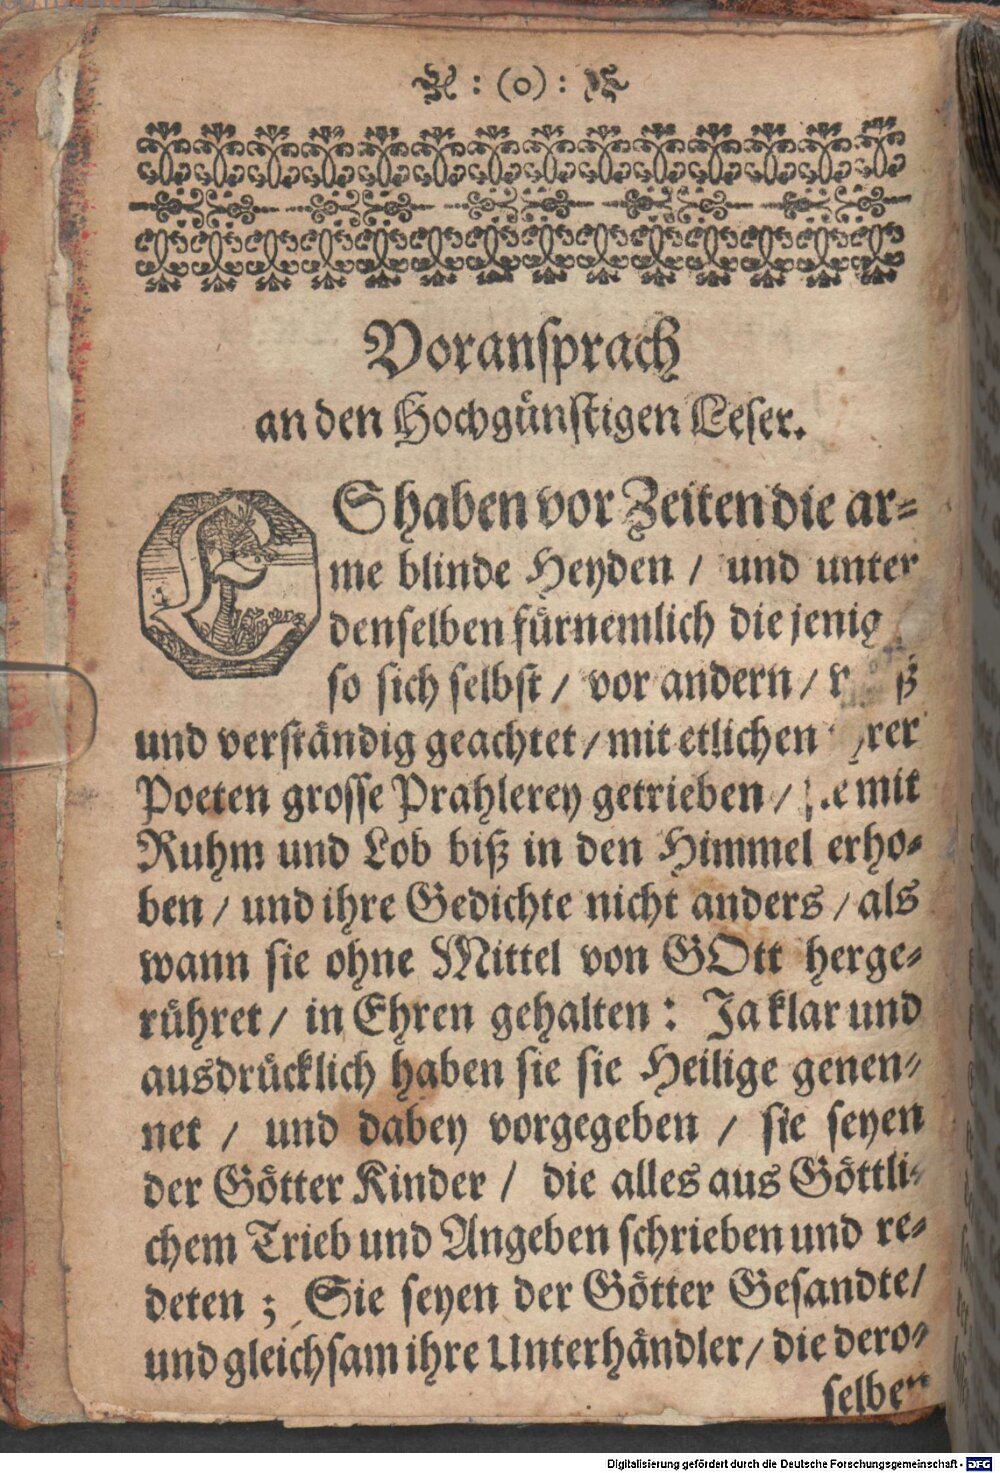 : (o) :
Voransprach
an den Hochgünstigen Leser.
ES haben vor Zeiten die ar-
me blinde Heyden / und unter
denselben fürnemlich die jenig
so sich selbst / vor andern /
und verständig geachtet / mit etlichen
Poeten grosse Prahlerey getrieben / mit
Ruhm und Lob biß in den Himmel erho-
ben / und ihre Gedichte nicht anders / als
wann sie ohne Mittel von GOtt herge-
rühret / in Ehren gehalten : Ja klar und
ausdrücklich haben sie sie Heilige genen-
net / und dabey vorgegeben / sie seyen
der Götter Kinder / die alles aus Göttli-
chem Trieb und Angeben schrieben und re-
deten ; Sie seyen der Götter Gesandte /
und gleichsam ihre Unterhändler / die dero-
selben
Digitalisierung gefördert durch die Deutsche Forschungsgemeinschaft - DFG